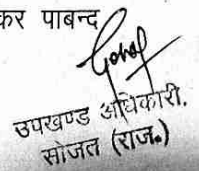 कर पाबन्द
उपखण्ड अधिकारी.
सोजत (राज.)